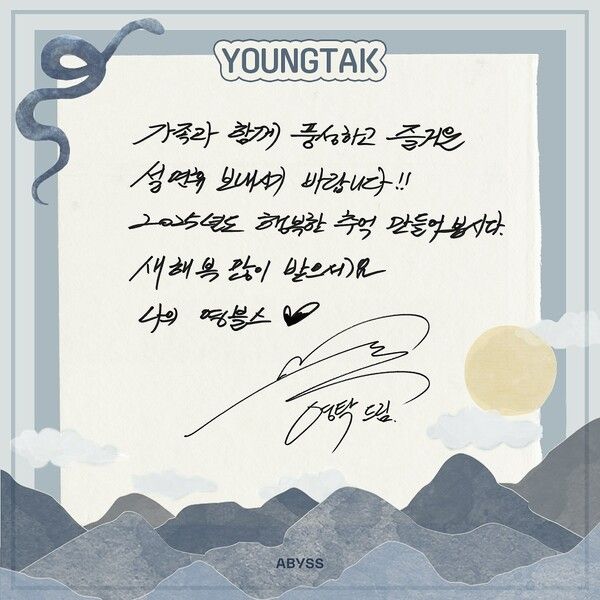 YOUNGTAK
가족과 함께 풍성하고 즐거운
설 연휴 보내시기 바랍니다!!
2025년도 행복한 추억 만들어 봅시다.
새해 복 많이 받으세요
나의 영블스
영탁 드림.
ABYSS